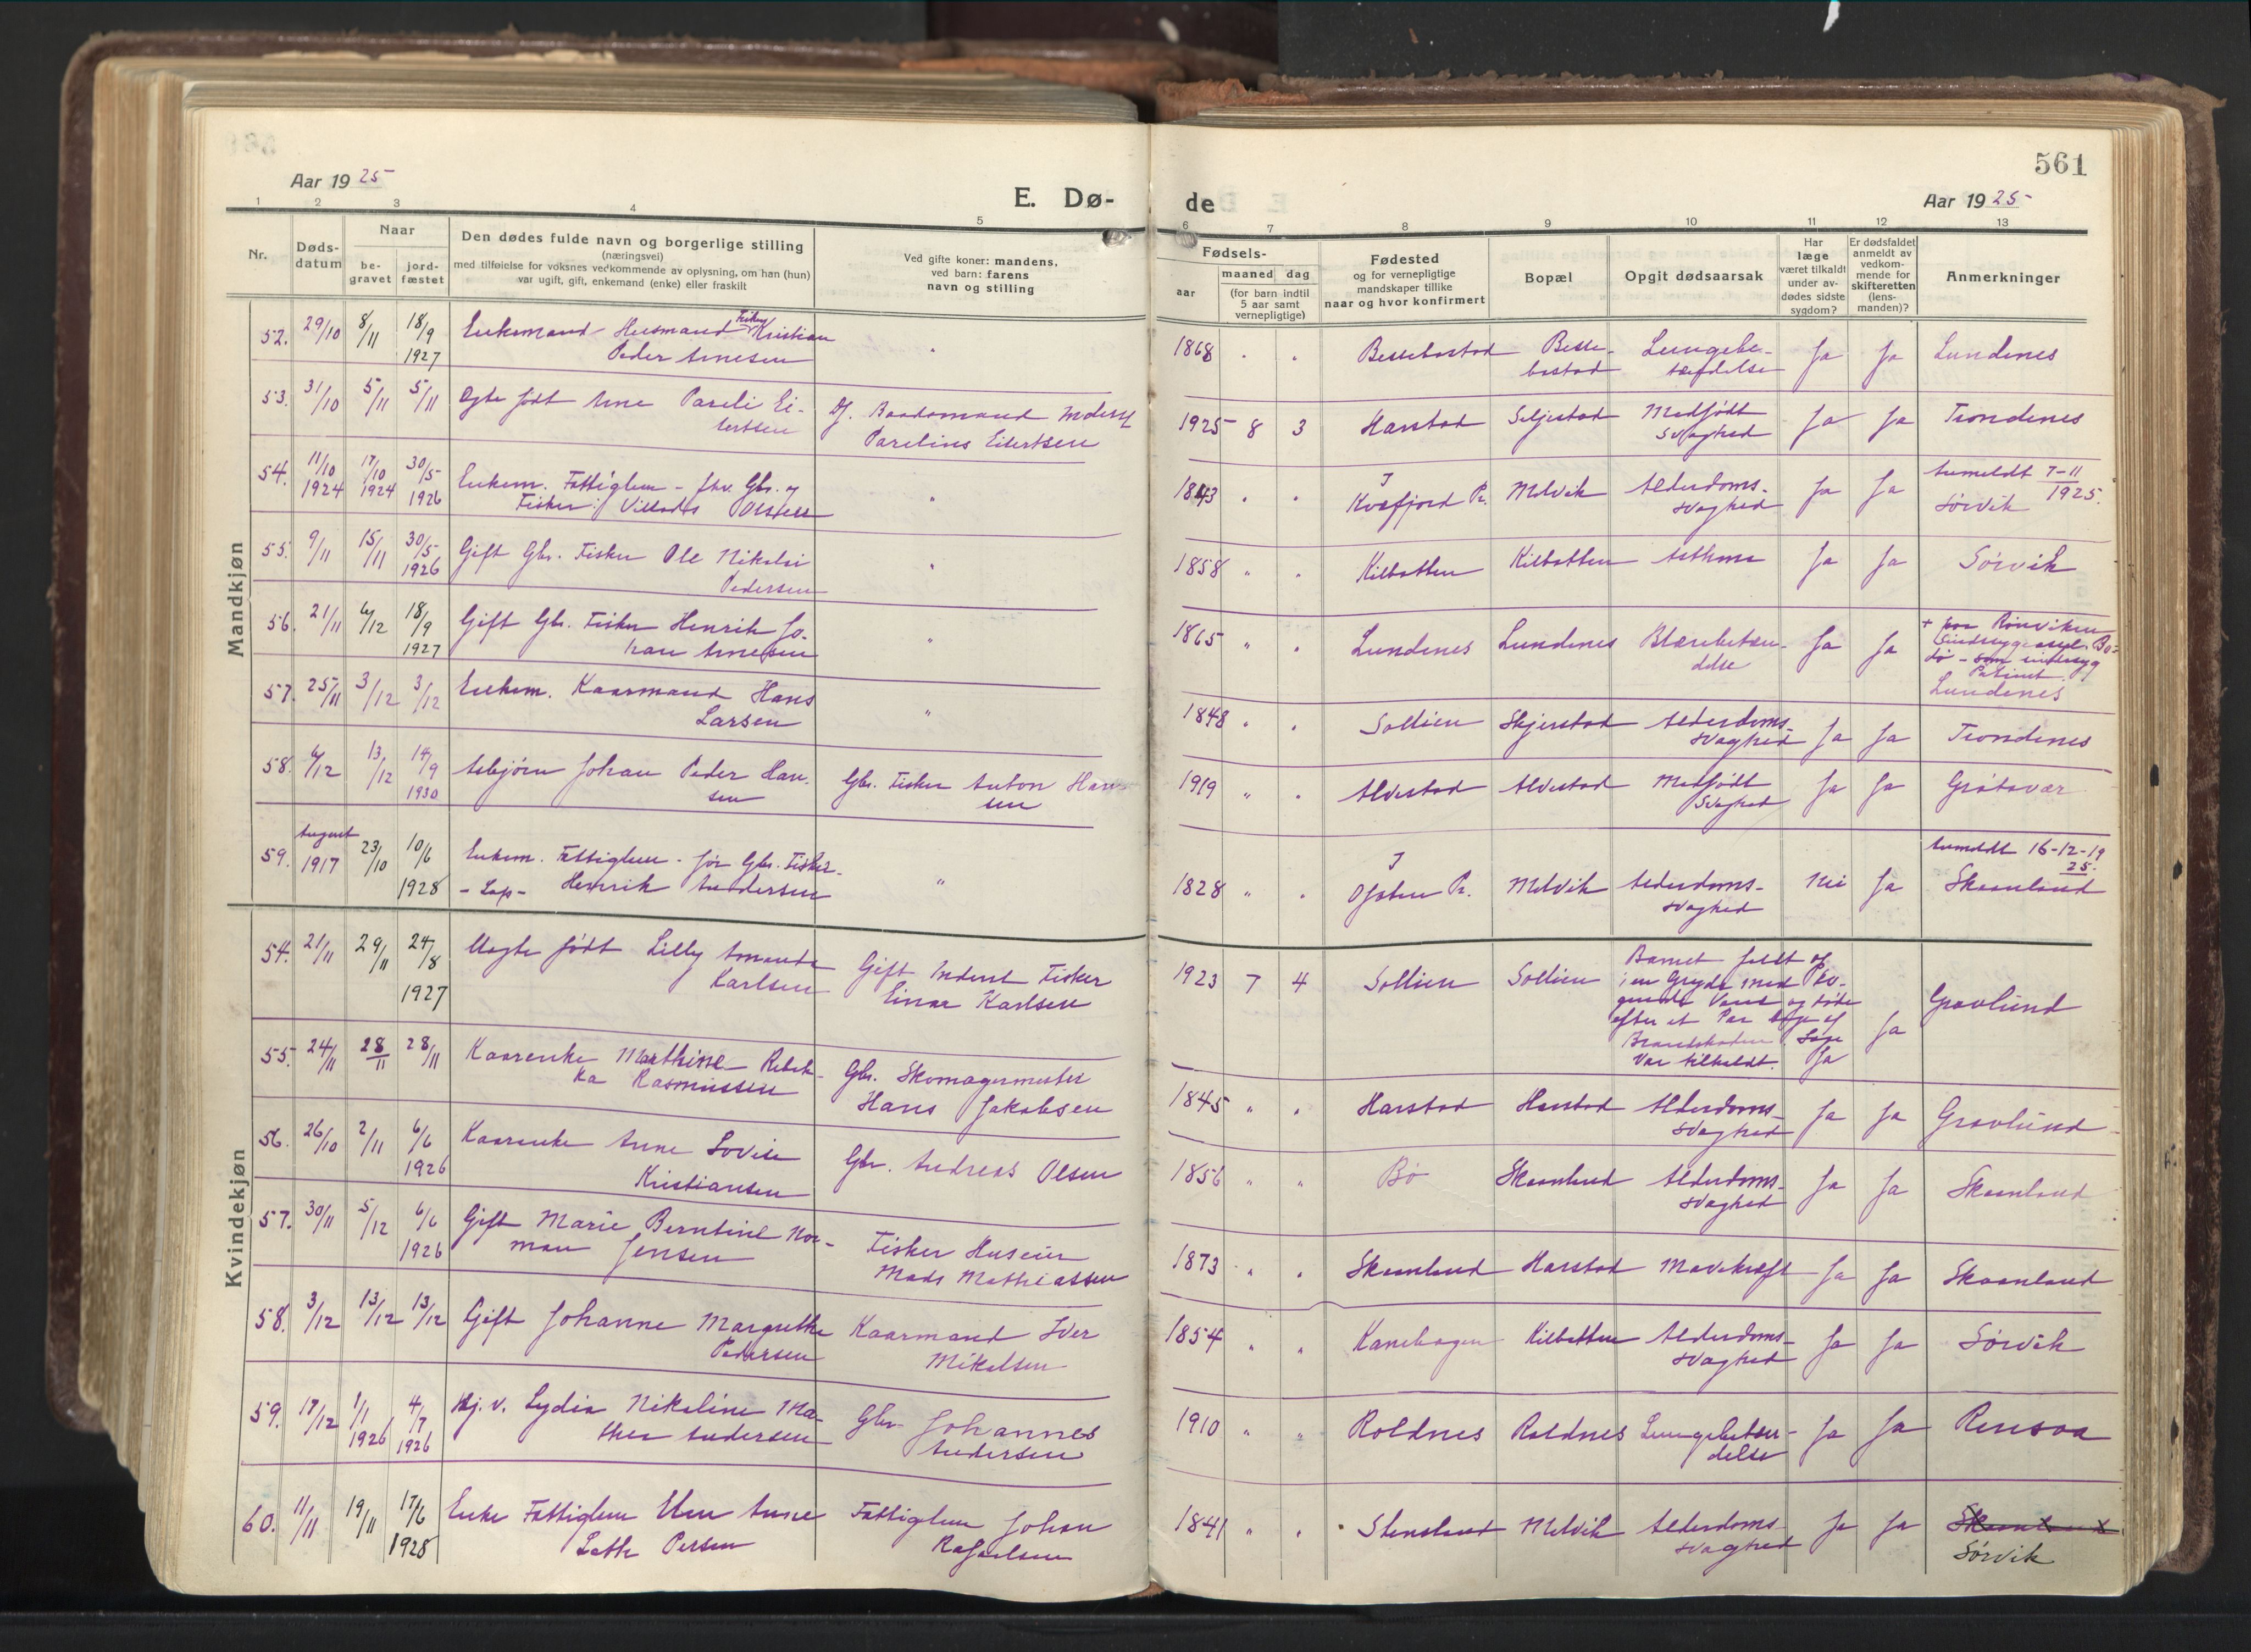 561
Aar 1925
E. Dø-
de
Aar 1925
1 2 3 4 5 6 7 8 9 10 11 12 13
Nr.
Døds-
datum
Naar
be-
gravet
jord-
fæstet
Den dødes fulde navn og borgerlige stilling
(næringsvei)
med tilføielse for voksnes vedkommende av oplysning, om han (hun)
var ugift, gift, enkemand (enke) eller fraskilt
Ved gifte koner: mandens,
ved barn: farens
navn og stilling
Fødsels-
aar
maaned dag
(for barn indtil
5 aar samt
vernepligtige)
Fødested
og for vernepligtige
mandskaper tillike
naar og hvor konfirmert
Bopæl
Opgit dødsaarsak
Har
læge
været tilkaldt
under av-
dødes sidste
sygdom?
Er dødsfaldet
anmeldt av
vedkom-
mende for
skifteretten
(lens-
manden)?
Anmerkninger
Mandkjøn
52. 29/10 8/11 18/9 1927 Enkemand Husmand Fisker Kristian
Peder Arnesen
1868 Bessebostad Besse-
bostad Lungebe-
tændelse Ja Ja Lundenes
53. 31/10 5/11 5/11 Ægte født Arne Pareli Ei-
lertsen
Baadsmand
Parelius Eilertsen
1925 8 3 Harstad Seljestad Medfødt
Svaghed Ja Ja Trondenes
54. 11/10 1924 17/10 1924 30/5 1926 Enkem. Fattiglem - fhv. Gbr. og
Fisker Villads Olsen
1843 I
Kvæfjord Pr. Melvik Alderdoms-
svaghed Ja Ja Anmeldt 7-11
1925.
Sørvik
55. 9/11 15/11 30/5 1926 Gift Gbr. Fisker Ole Nikolai
Pedersen
1858 Kilbotten Kilbotten Asthma Ja Ja Sørvik
56. 21/11 6/12 18/9 1927 Gift Gbr. Fisker Henrik Jo-
han Arnesen
1865 Lundenes Lundenes Blærebetæn-
delse Ja Ja + paa Rønvikens
Sindssygeasyl Bo-
dø - som sindssyg
Patient
Lundenes
57. 25/11 3/12 3/12 Enkem. Kaarmand Hans
Larsen
1848 Sollien Skjerstad Alderdoms-
svaghed Ja Ja Trondenes
58. 6/12 13/12 14/9 1930 Asbjørn Johan Peder Han-
sen
Gbr. Fisker Anton Han-
sen
1919 Alvestad Alvestad Medfødt
Svaghed Ja Ja Grøtavær
59. August 1917 23/10 10/6 1928 Enkem. Fattiglem - før Gbr. Fisker
- Lap - Henrik Andersen
1828 I
Ofoten Pr. Melvik Alderdoms-
svaghed Nei Ja Anmeldt 16-12-19
25.
Skaanland
Kvindekjøn
54. 21/11 29/11 24/8 1927 Uægte født Lilly Amanda
Karlsen
Gift Inderst Fisker
Einar Karlsen
1923 7 4 Sollien Sollien Barnet faldt
i en Gryde med Ko-
gende Vand og døde
efter et Par Dage af
Brandskaden. Læge
var tilkaldt. Ja Ja Gravlund
55. 24/11 28/11 28/11 Kaarenke Marthine Rebek-
ka Rasmussen
Gbr. Skomagermester
Hans Jakobsen
1845 Harstad Harstad Alderdoms-
svaghed Ja Ja Gravlund
56. 26/10 2/11 6/6 1926 Kaarenke Anne Lovise
Kristiansen
Gbr. Andreas Olsen
1856 Bø Skaanland Alderdoms-
svaghed Ja Ja Skaanland
57. 30/11 5/12 6/6 1926 Gift Marie Berntine Nor-
man Jensen
Fisker Huseier
Mads Mathiassen
1873 Skaanland Harstad Mavekræft Ja Ja Skaanland
58. 3/12 13/12 13/12 Gift Johanne Margrethe
Pedersen
Kaarmand Iver
Mikelsen
1854 Kanebogen Kilbotten Alderdoms-
svaghed Ja Ja Sørvik
59. 17/12 1/1 1926 4/7 1926 Hj. v. Lydia Nikoline Ma-
thea Andersen
Gbr. Johannes
Andersen
1910 Roldnes Roldnes Lungebetæn-
delse Ja Ja Rensaa
60. 11/11 19/11 17/6 1928 Enke Fattiglem Anne
Persen
Fattiglem Johan
Rafaelsen
1841 Stensland Melvik Alderdoms
svaghed Ja Ja Skaanland
Sørvik